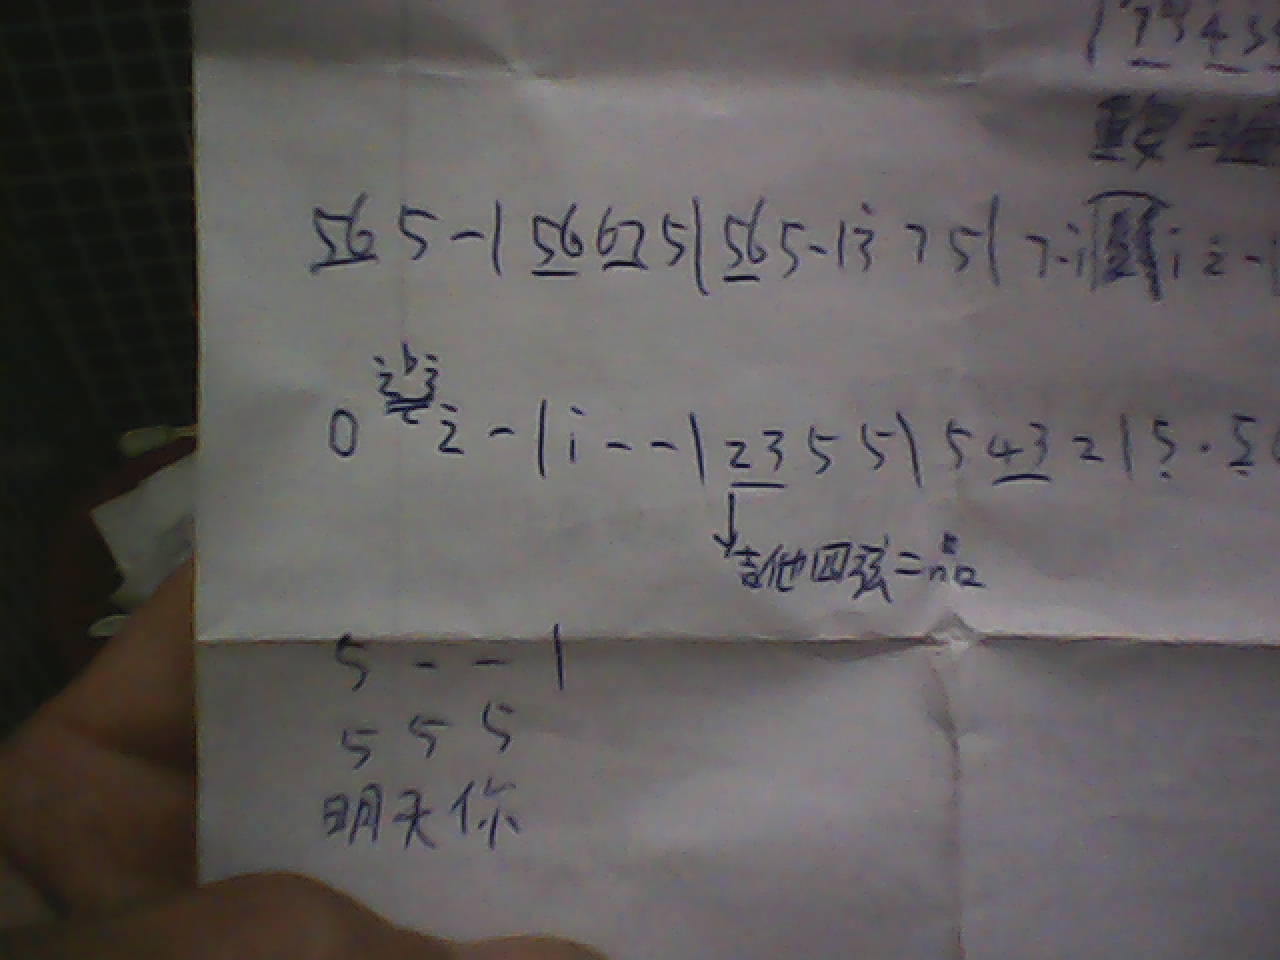 | 7 5 4 3
重复
56 5 - | 56 67 5 | 56 5 - | 3̇ 7 5 | 7· i̇ i̇ 2̇ - |
0 2̇ - | i̇ - - | 23 5 5 | 5 43 2 | 5̣ · 5̣
吉他四弦二品
5 - - |
5 5 5
明天你